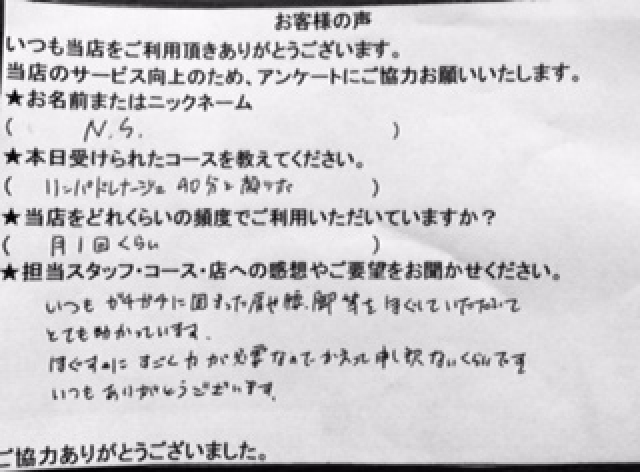 お客様の声
いつも当店をご利用頂きありがとうございます。
当店のサービス向上のため、アンケートにご協力お願いいたします。
★お名前またはニックネーム
( N.S. )
★本日受けられたコースを教えてください。
( リンパドレナージュ 90分と顔ツボ )
★当店をどれくらいの頻度でご利用いただいていますか?
( 月1回くらい )
★担当スタッフ・コース・店への感想やご要望をお聞かせください。
いつも ガチガチに固まった肩や腰、脚等をほぐしていただいて
とても助かっています。
ほぐすのに すごく力が必要なので かえって申し訳ないくらいです
いつもありがとうございます。
ご協力ありがとうございました。